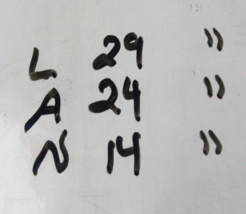 L 29 "
A 24 "
N 14 "